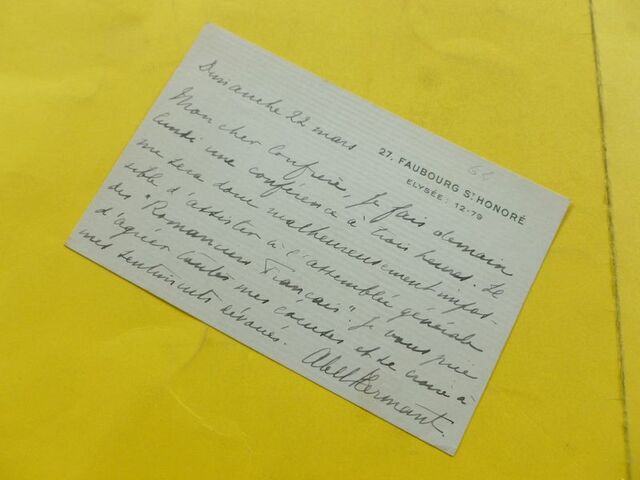 64
27, FAUBOURG ST HONORÉ
ELYSÉE: 12-79
Dimanche 22 mars
Mon cher Confrère, je fais demain
lundi une conférence à trois heures. Il
me sera donc malheureusement impos-
sible d'assister à l'assemblée générale
des "Romanciers Français". Je vous prie
d'agréer toutes mes excuses et de croire à
mes sentiments dévoués.
Abel Hermant.